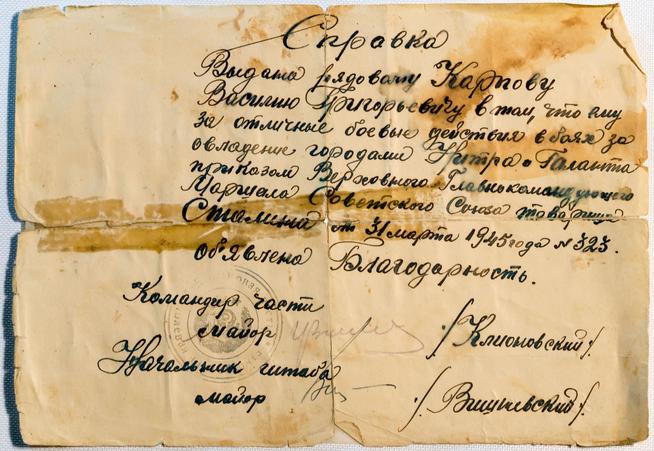 Справка
Выдана рядовому Карпову
Василию Григорьевичу в том, что ему
за отличные боевые действия в боях за
овладение городами Нитра и Галанта
приказом Верховного Главнокомандующего
Маршела Советского Союза товарища
Сталина от 31 марта 1945 года № 323.
об'явлена Благодарность.
Командир части
майор /Клионовский/.
Начальник штаба
майор /Вишневский/.